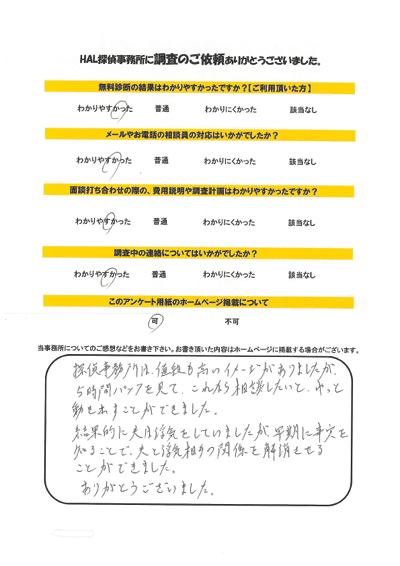 HAL探偵事務所に調査のご依頼ありがとうございました。
無料診断の結果はわかりやすかったですか？【ご利用頂いた方】
わかりやすかった 普通 わかりにくかった 該当なし
メールやお電話の相談員の対応はいかがでしたか？
わかりやすかった 普通 わかりにくかった 該当なし
面談打ち合わせの際の、費用説明や調査計画はわかりやすかったですか？
わかりやすかった 普通 わかりにくかった 該当なし
調査中の連絡についてはいかがでしたか？
わかりやすかった 普通 わかりにくかった 該当なし
このアンケート用紙のホームページ掲載について
可 不可
当事務所についてのご感想などをお書き下さい。お書き頂いた内容はホームページに掲載する場合がございます。
探偵事務所は、値段も高いイメージがありましたが、
5時間パックを見て、これなら相談したいと、やっと
動き出すことができました。
結果的に夫は浮気をしていましたが早期に事実を
知ることで、夫と浮気相手の関係を解消させる
ことができました。
ありがとうございました。